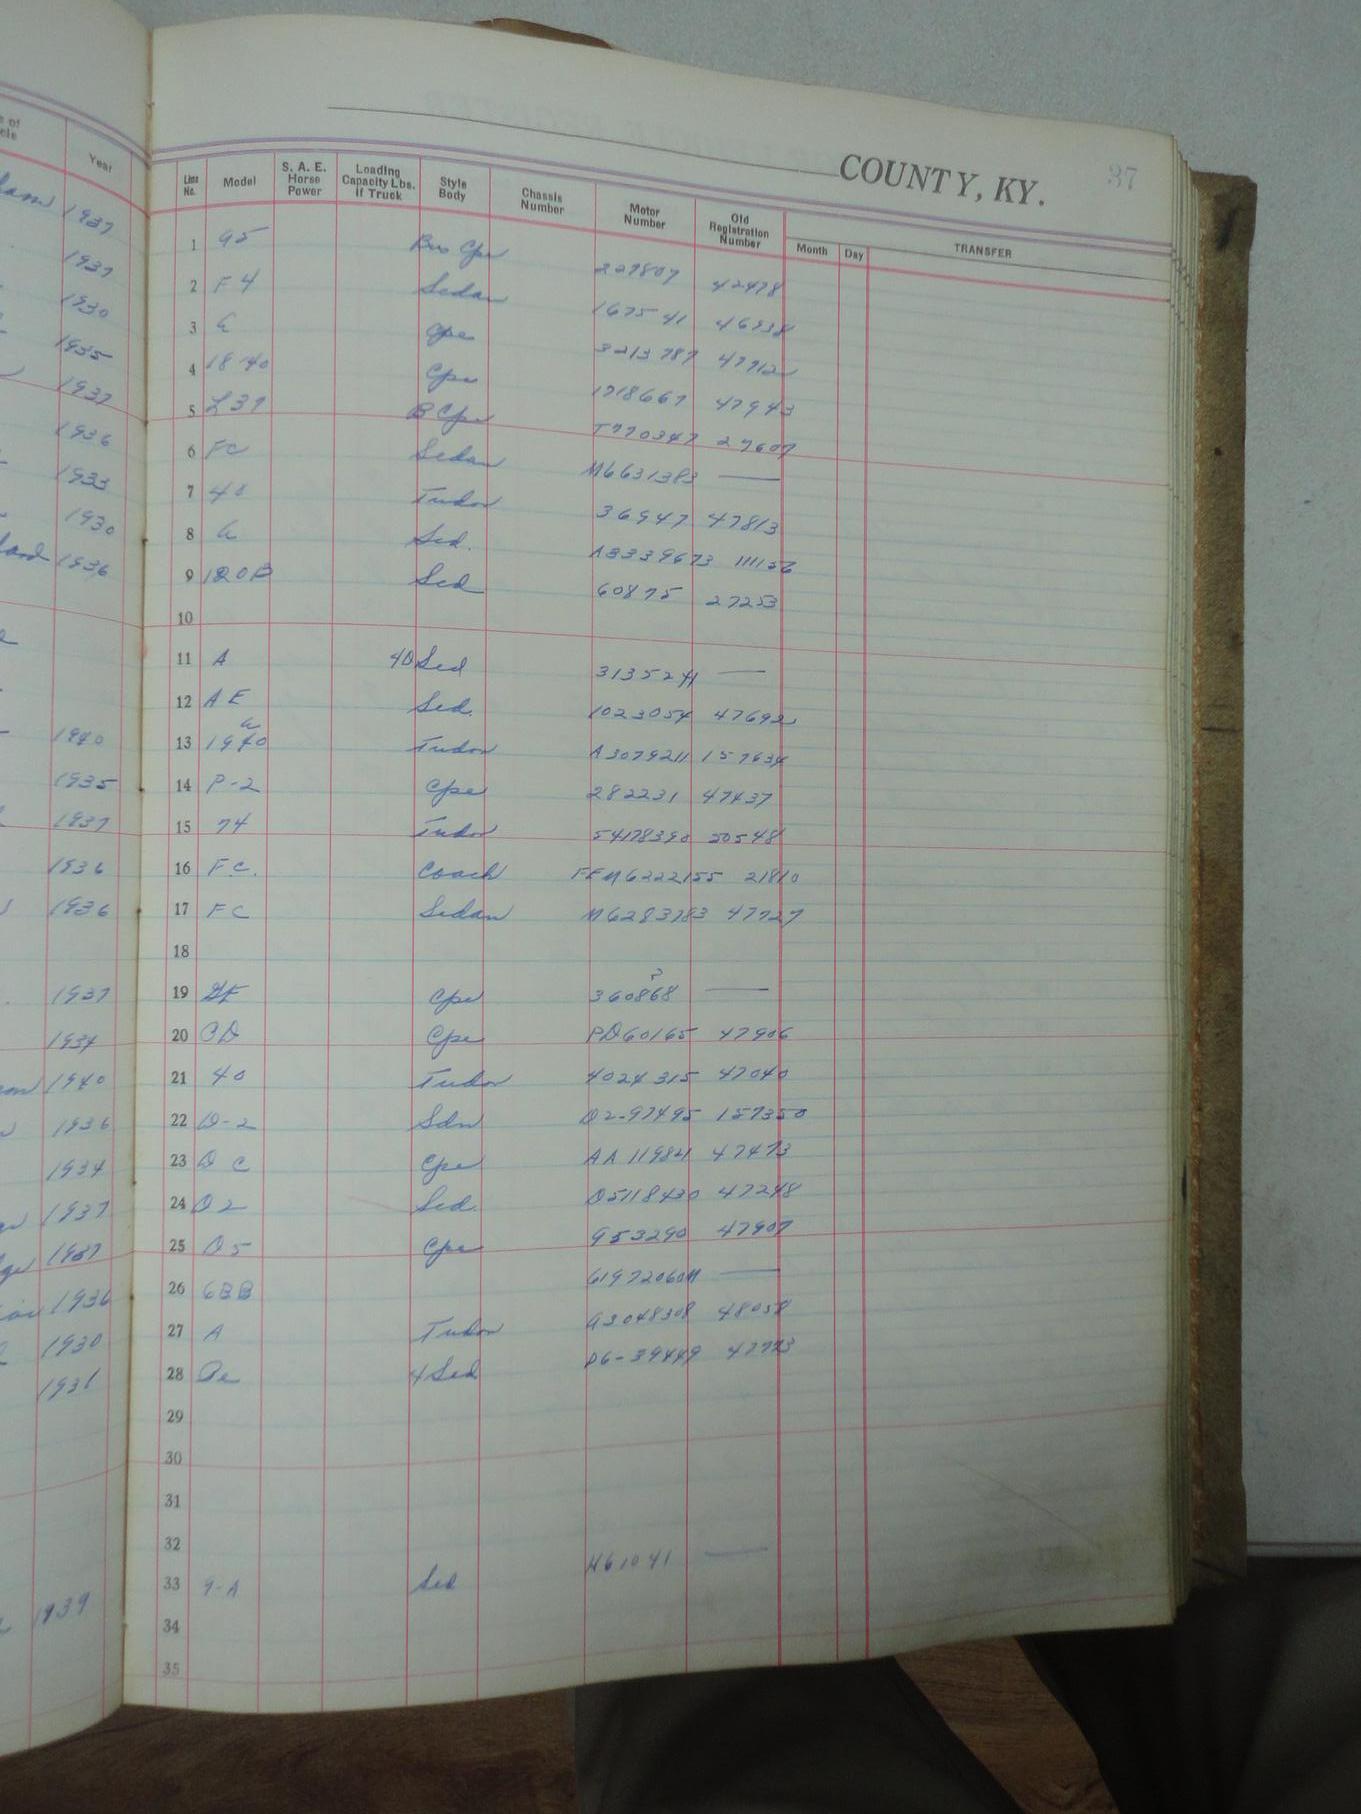 COUNTY, KY. 37
Year Line No. Model S. A. E. Horse Power Loading Capacity Lbs. if Truck Style Body Chassis Number Motor Number Old Registration Number Month Day TRANSFER
1937 1 95 Bus Cpe 227807 42478
1937 2 F4 Sedan 167541 46938
1930 3 A Cpe 3213787 47712
1935 4 18-40 Cpe 1718667 47943
1937 5 L37 B Cpe T770347 27607
1936 6 FC Sedan M6631383 —
1933 7 40 Tudor 36947 47813
1930 8 A Sed. A3339673 111156
1936 9 120B Sed 60875 27253
10
11 A 4D Sed 3135241 —
12 AE Sed. 1023054 47692
1940 13 1940 Tudor A3079211 157634
1935 14 P-2 Cpe 282231 47437
1937 15 74 Tudor 54178390 20548
1936 16 FC. Coach FFM6222155 21810
1936 17 FC Sedan M6283783 47727
18
1937 19 Cpe 360868 —
1934 20 CD Cpe PD60165 47906
1940 21 40 Tudor 4024315 47040
1936 22 D-2 Sdn D2-97495 157350
1934 23 DC Cpe AA119841 47473
1937 24 D2 Sed. D5118430 47248
1937 25 D5 Cpe 953290 47907
1936 26 6BB 619720601 —
1930 27 A Tudor A3048308 48058
1931 28 4 Sed D6-39449 47773
29
30
31
32
1939 33 9-A Sed H61041 —
34
35